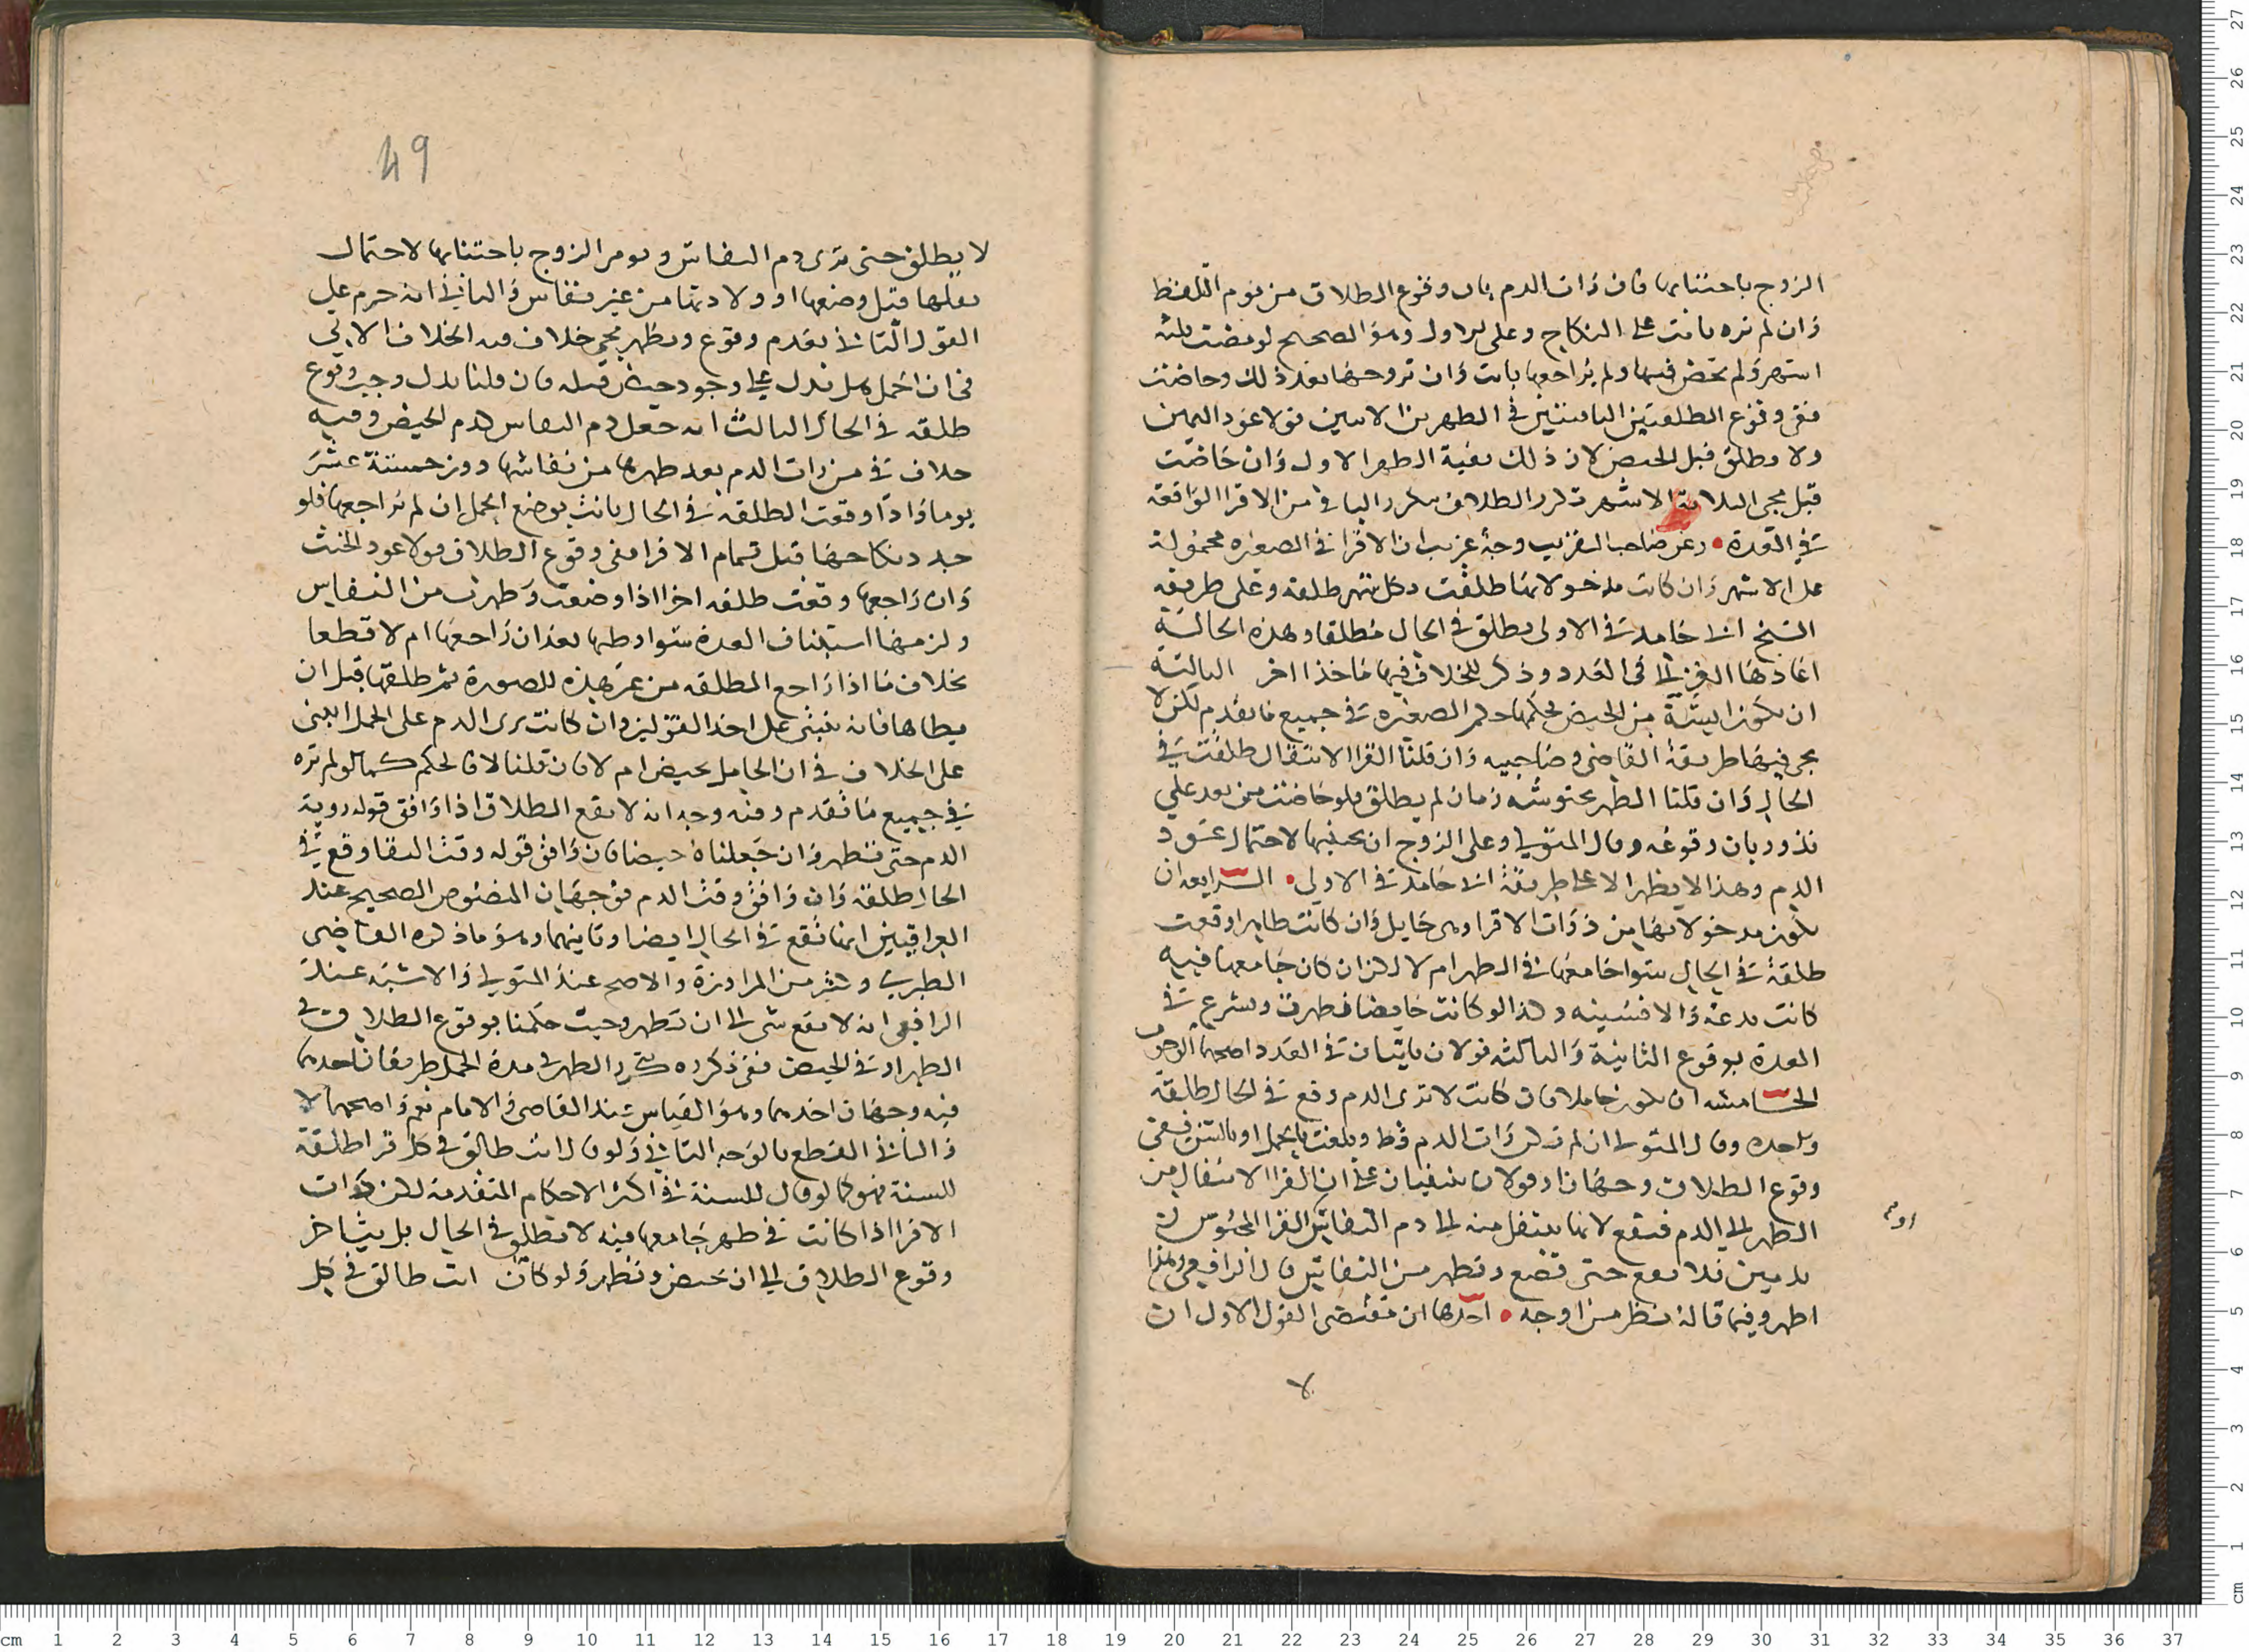 الزوج باجتنابها فان رات الدم بان وقوع الطلاق من يوم اللفظ
وان لم تره ماتت على النكاح وعلى الاول وهو الصحيح لو مضت ثلثه
اشهر ولم تحض فيها ولم يراجعها بانت وان تزوجها بعد ذلك وحاضت
ففي وقوع الطلقتين الباقيتين في الطهرين الاتيين قولا عود اليمين
ولا يطلق قبل الحيض لان ذلك بقية الطهر الاول وان حاضت
قبل مجى الثلاثة الاشهر تكرر الطلاق بتكرر الباقي من الاقرا الواقعة
في العدة وعن صاحب التقريب وجه غريب ان الاقرا في الصغيره محمولة
على الاشهر وان كانت مدخولا بها طلقت في كل شهر طلقه وعلى طريقه
الشيخ ابي حامد في الاولى يطلق في الحال مطلقا وهذه الحالة
اعادها الغزالي في العدد وذكر للخلاف فيها ماخذا اخر الثالثة
ان تكون ايسة من الحيض فحكمها حكم الصغيره في جميع ما تقدم لكن لا
يجي فيها طريقة القاضي وصاحبيه وان قلنا القرا الانتقال طلقت في
الحال وان قلنا الطهر يحتوشه دمان لم يطلق فلو حاضت من بعد على
ندور بان وقوعه وقال المتولي وعلى الزوج ان يجتنبها لاحتمال عود
الدم وهذا لا يظهر الا على طريقة ابي حامد في الاولى الرابعه ان
تكون مدخولا بها من ذوات الاقرا وهي حايل وان كانت طاهرا وقعت
طلقة في الحال سوا جامعها في الطهر ام لا لكن ان كان جامعها فيه
كانت بدعة والا فسنيه وكذا لو كانت حايضا فطهرت وتشرع في
العدة بوقوع الثانية والثالثه قولان ياتيان في العدد اصحهما الوجوب
الخامسه ان تكون حاملا فان كانت لا ترى الدم وقع في الحال طلقة
واحده وقال المتولي ان لم تكن رات الدم قط وبلغت بالحمل او بالسن ففي
وقوع الطلاق وجهان او قولان مبنيان على ان القرا الانتقال من
الطهر الى الدم فيقع لانها تنتقل منه الى دم النفاس او القرا المحتوش
بدمين فلا يقع حتى تضع وتطهر من النفاس قال الرافعي وهذا
اظهر وفيما قاله نظر من اوجه احدها ان مقتضى القول الاول ان
لا
او م
49
لا يطلق حتى ترى دم النفاس ويومر الزوج باجتنابها لاحتمال
موتها قبل وضعها او ولادتها من غير نفاس والثاني انه جزم على
القول الثاني بعدم وقوع ويظهر مجى خلاف فيه الخلاف الاتي
في ان الحمل هل يدل على وجود حيض قبله فان قلنا يدل وجب وقوع
طلقه في الحال الثالث انه جعل دم النفاس كدم الحيض وفيه
خلاف في من رات الدم بعد طهرها من نفاسها دون خمسة عشر
يوما واذا وقعت الطلقة في الحال بانت بوضع الحمل ان لم يراجعها فلو
جدد نكاحها قبل تمام الاقرا ففي وقوع الطلاق قولا عود الحنث
وان راجعها وقعت طلقه اخرا اذا وضعت وطهرت من النفاس
ولزمها استيناف العدة سوا وطيها بعد ان راجعها ام لا قطعا
بخلاف ما اذا راجع المطلقه من غير هذه الصورة ثم طلقها قبل ان
يطاها فانه يبتنى على احد القولين وان كانت ترى الدم على الحمل ابتنى
على الخلاف في ان الحامل تحيض ام لا فان قلنا لا فالحكم كما لو لم تره
في جميع ما تقدم وفيه وجه انه لا يقع الطلاق اذا وافق قوله روية
الدم حتى تطهر وان جعلناه حيضا فان وافق قوله وقت النقا وقع في
الحال طلقة وان وافق وقت الدم فوجهان المنصوص الصحيح عند
العراقيين انها تقع في الحال ايضا وثانيهما وهو ما ذكره القاضي
الطبري وكثير من المراوزة والاصح عند المتولي والاشبه عند
الرافعي انه لا يقع شي الى ان تطهر وحيث حكمنا بوقوع الطلاق في
الطهر او في الحيض ففي تكرره بتكرر الطهر في مدة الحمل طريقان احدهما
فيه وجهان احدهما وهو القياس عند القاضي والامام نعم واصحهما لا
والثاني القطع بالوجه الثاني ولو قال انت طالق في كل قرا طلقة
للسنة فهو كما لو قال للسنة في اكثر الاحكام المتقدمة لكن ذوات
الاقرا اذا كانت في طهر جامعها فيه لا تطلق في الحال بل يتاخر
وقوع الطلاق الى ان تحيض وتطهر ولو كان انت طالق في كل